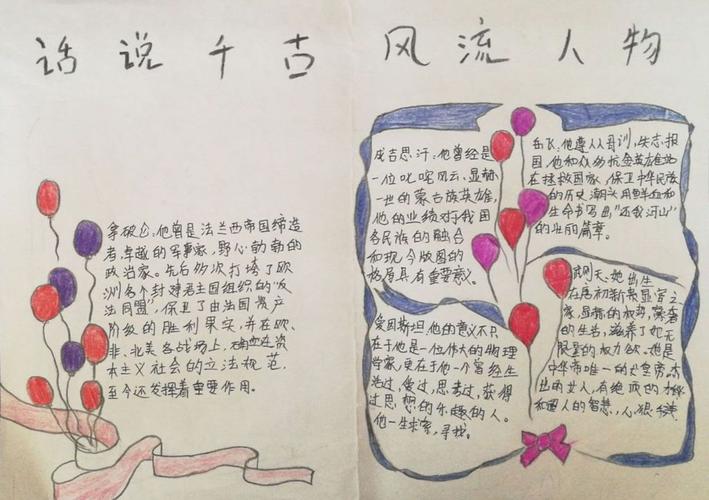 话说千古风流人物
拿破仑,他曾是法兰西帝国缔造
者,卓越的军事家,野心勃勃的
政治家。先后多次打垮了欧
洲各个封建君主国组织的“反
法同盟”,保卫了由法国资产
阶级的胜利果实,并在欧、
非、北美各战场上,确立在资
本主义社会的立法规范,
至今还发挥着重要作用。
成吉思汗,他曾经是
一位叱咤风云、显赫
一世的蒙古族英雄,
他的业绩对于我国
各民族的融合
和现今版图的
格局具有重要意义。
岳飞,他尊从母训,矢志报
国,他和众多抗金英雄站
在拯救国家,保卫中华民族
的历史潮头用鲜血和
生命书写出“还我河山”
的壮丽篇章。
爱因斯坦,他的意义不只
在于他是一位伟大的物理
学家,更在于他一个曾经生
活过,爱过,思考过,获得
过思想的乐趣的人。
他一生求索,寻找。
武则天,她出生
在唐初新贵显宦之
家,显赫的权势,豪奢
的生活,滋养了她无
限量的权力欲。她是
中华帝唯一的女皇帝,杰
出的女人,有绝顶的才
和惑人的智慧,心狠手